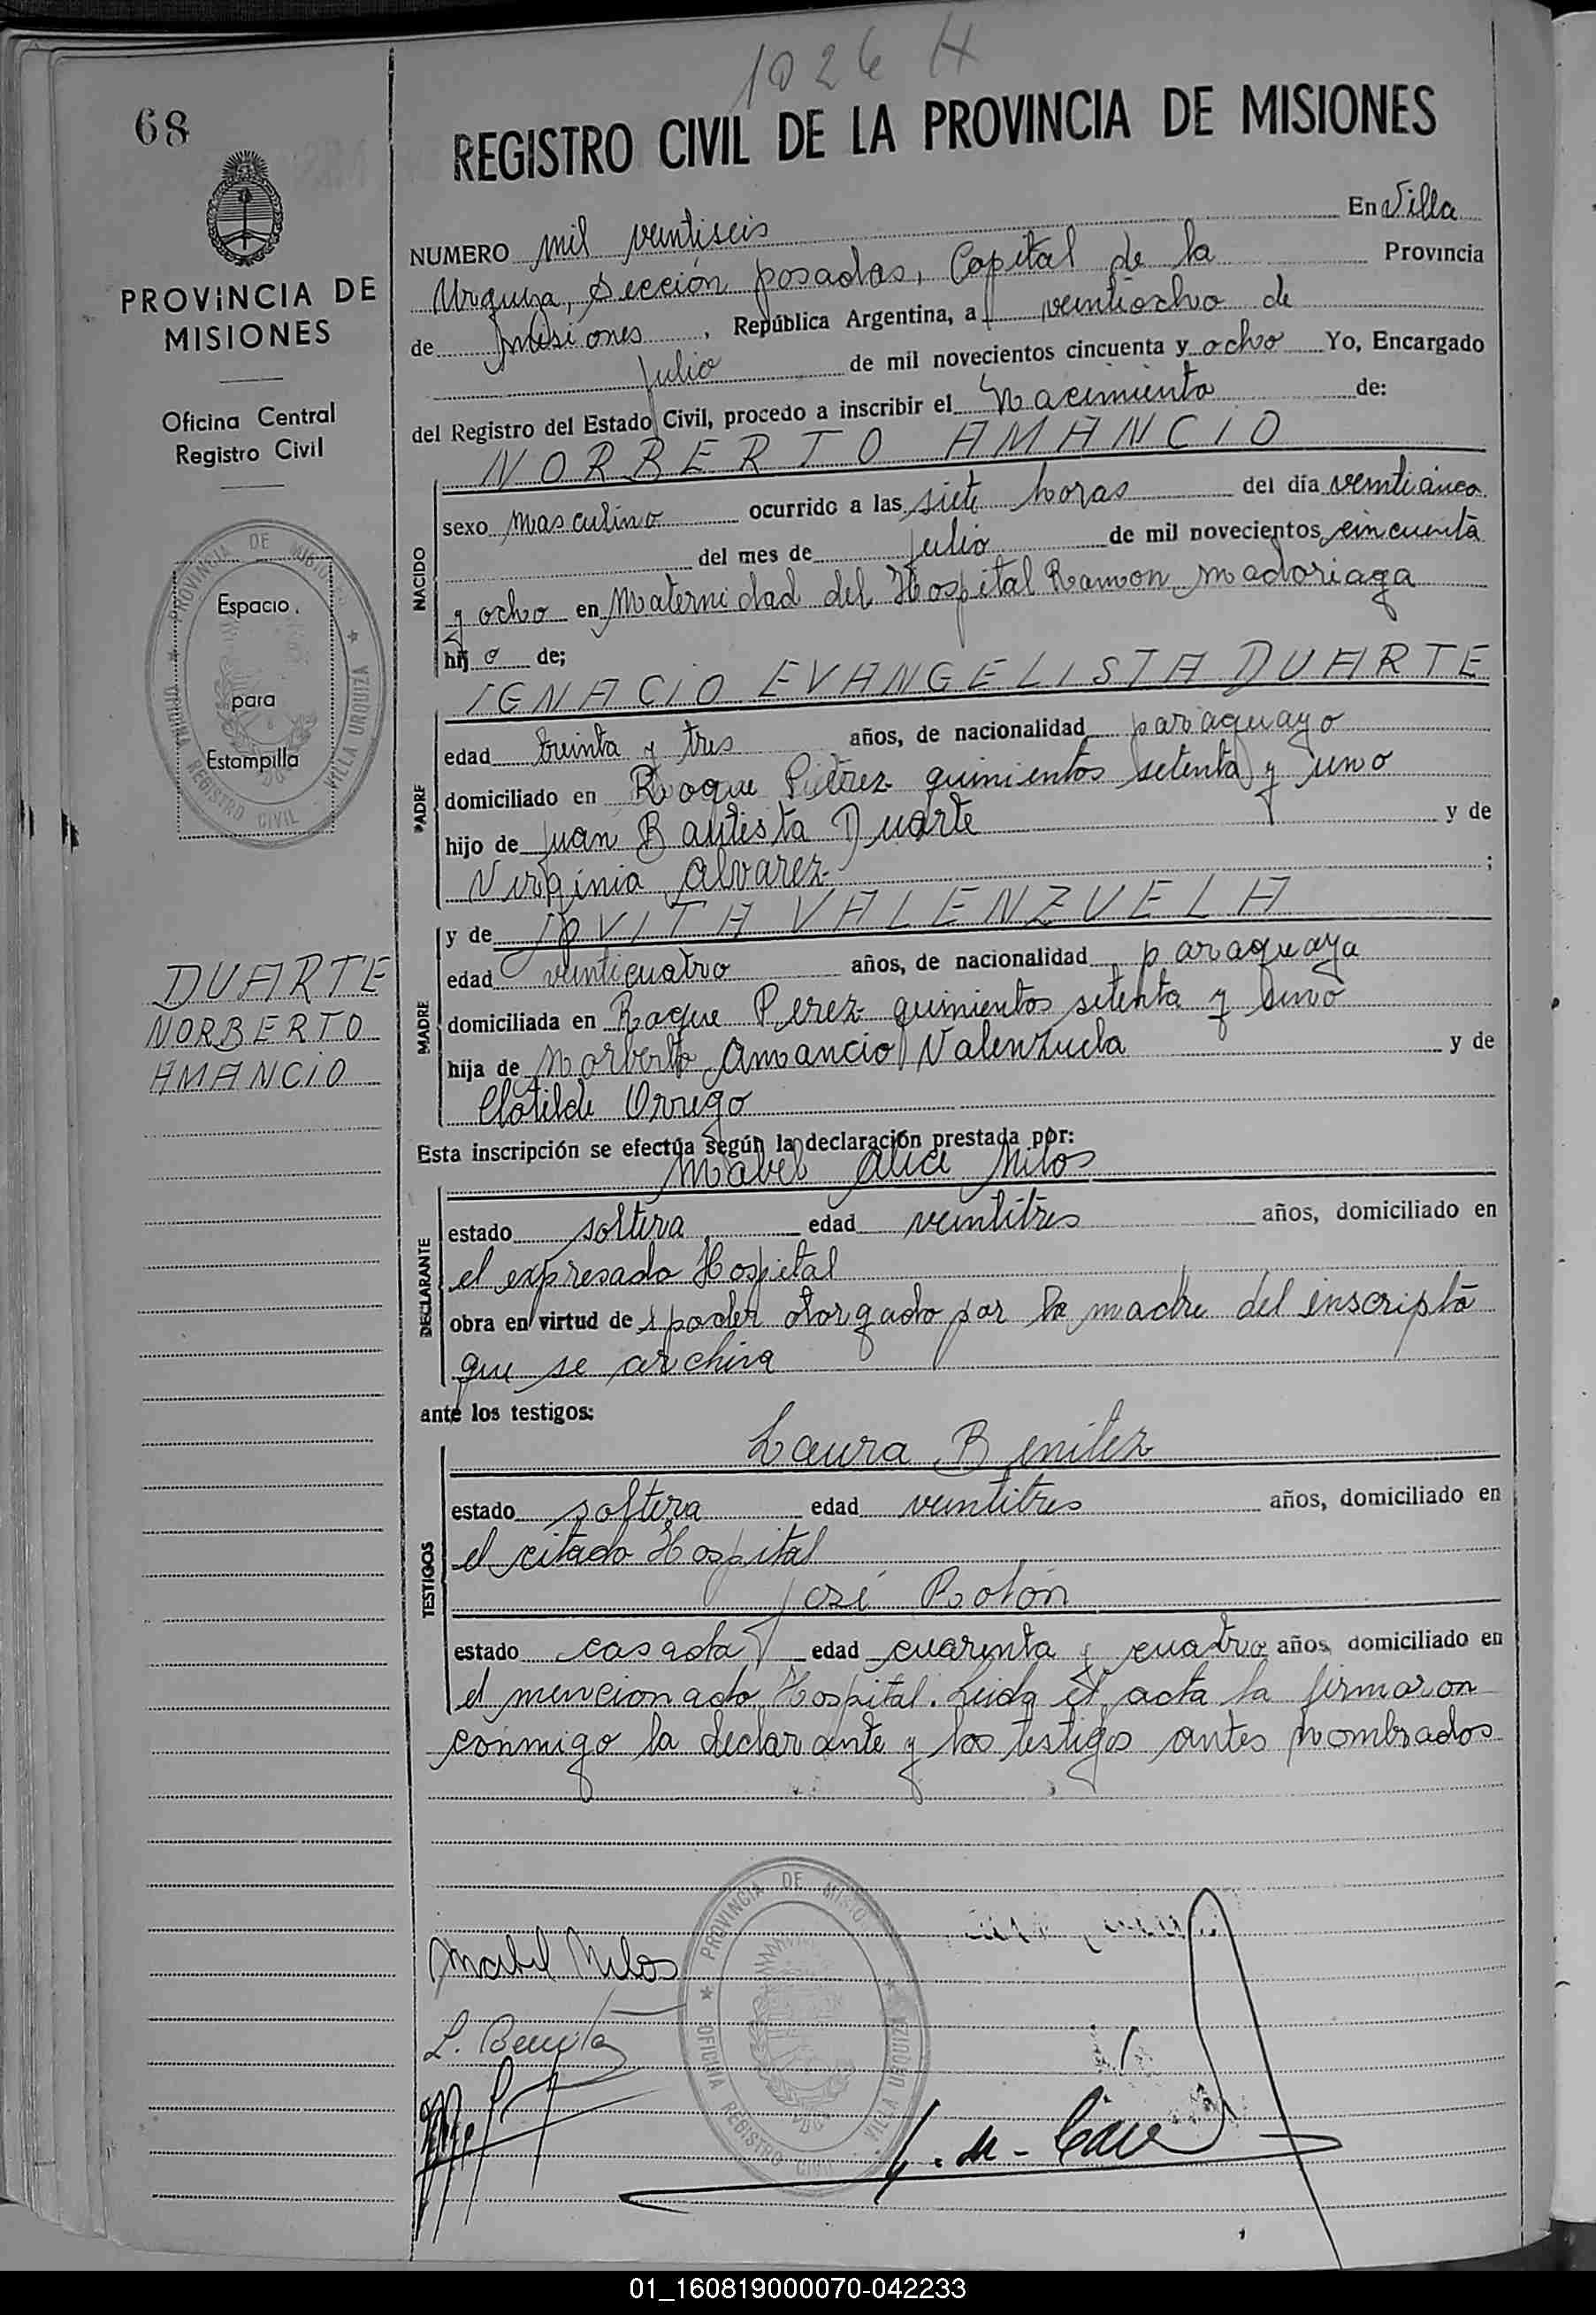 1026 H
68
REGISTRO CIVIL DE LA PROVINCIA DE MISIONES
PROVINCIA DE
MISIONES
Oficina Central
Registro Civil
PROVINCIA DE MISIONES
OFICINA REGISTRO CIVIL VILLA URQUIZA
Espacio
para
Estampilla
DUARTE
NORBERTO
AMANCIO
NUMERO mil veintiseis En Villa
Urquiza, Sección posadas, Capital de la Provincia
de Misiones, República Argentina, a veintiocho de
Julio de mil novecientos cincuenta y ocho Yo, Encargado
del Registro del Estado Civil, procedo a inscribir el Nacimiento de:
NORBERTO AMANCIO
NACIDO
sexo Masculino ocurrido a las siete horas del día veinticinco
del mes de julio de mil novecientos cincuenta
y ocho en Maternidad del Hospital Ramon Madoriaga
hijo de;
IGNACIO EVANGELISTA DUARTE
PADRE
edad treinta y tres años, de nacionalidad paraguayo
domiciliado en Roque Pérez quinientos setenta y uno
hijo de Juan Bautista Duarte y de
Virginia Alvarez ;
y de JOVITA VALENZUELA
MADRE
edad veinticuatro años, de nacionalidad paraguaya
domiciliada en Roque Perez quinientos setenta y uno
hija de Norberto Amancio Valenzuela y de
Clotilde Orrego
Esta inscripción se efectúa según la declaración prestada por:
Mabel Alice Nilos
DECLARANTE
estado soltera edad veintitres años, domiciliado en
el expresado Hospital
obra en virtud de poder otorgado por la madre del inscripto
que se archiva
ante los testigos:
Laura Benitez
TESTIGOS
estado soltera edad veintitres años, domiciliado en
el citado Hospital
José Rolón
estado casado edad cuarenta y cuatro años domiciliado en
el mencionado Hospital. Leida el acta la firmaron
conmigo la declarante y los testigos antes nombrados
Mabel Nilos
L. Benitez
PROVINCIA DE MISIONES
OFICINA REGISTRO CIVIL VILLA URQUIZA
01_160819000070-042233